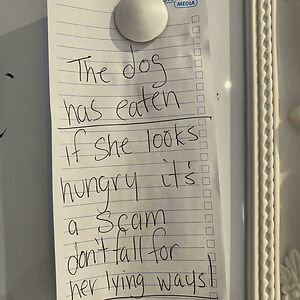 MEDIA
The dog
has eaten
if she looks
hungry it's
a scam
don't fall for
her lying ways!